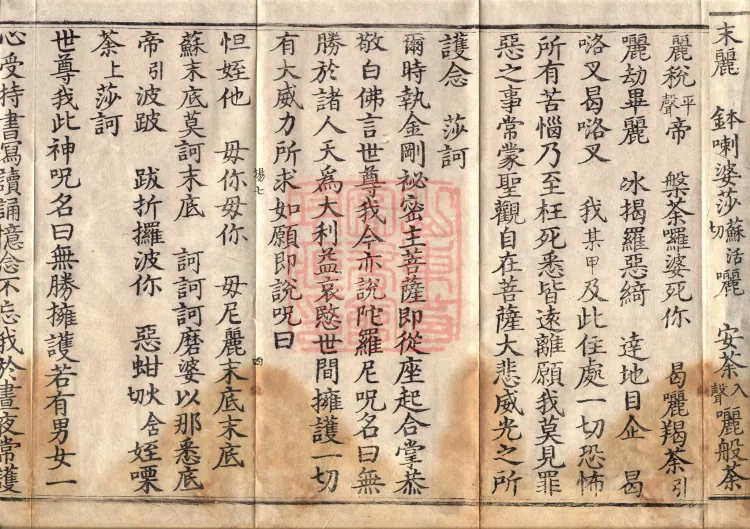 末麗　鉢喇婆莎蘇活切麗　安荼入聲麗般荼
麗稅平聲帝　槃荼囉婆死你　曷麗羯荼引
麗劫畢麗　冰揭羅惡綺　達地目企　曷
咯叉曷咯叉　我某甲及此住處一切恐怖
所有苦惱乃至枉死悉皆遠離願我莫見罪
惡之事常蒙聖觀自在菩薩大悲威光之所
護念　莎訶
爾時執金剛祕密主菩薩即從座起合掌恭
敬白佛言世尊我今亦說陀羅尼呪名曰無
勝於諸人天為大利益哀愍世間擁護一切
有大威力所求如願即說呪曰
怛姪他　毋你毋你　毋尼麗末底末底
蘇末底莫訶末底　訶訶訶磨婆以那悉底
帝引波跛　跋折攞波你　惡蚶火切舍姪㗚
荼上莎訶
世尊我此神呪名曰無勝擁護若有男女一
心受持書寫讀誦憶念不忘我於晝夜常護